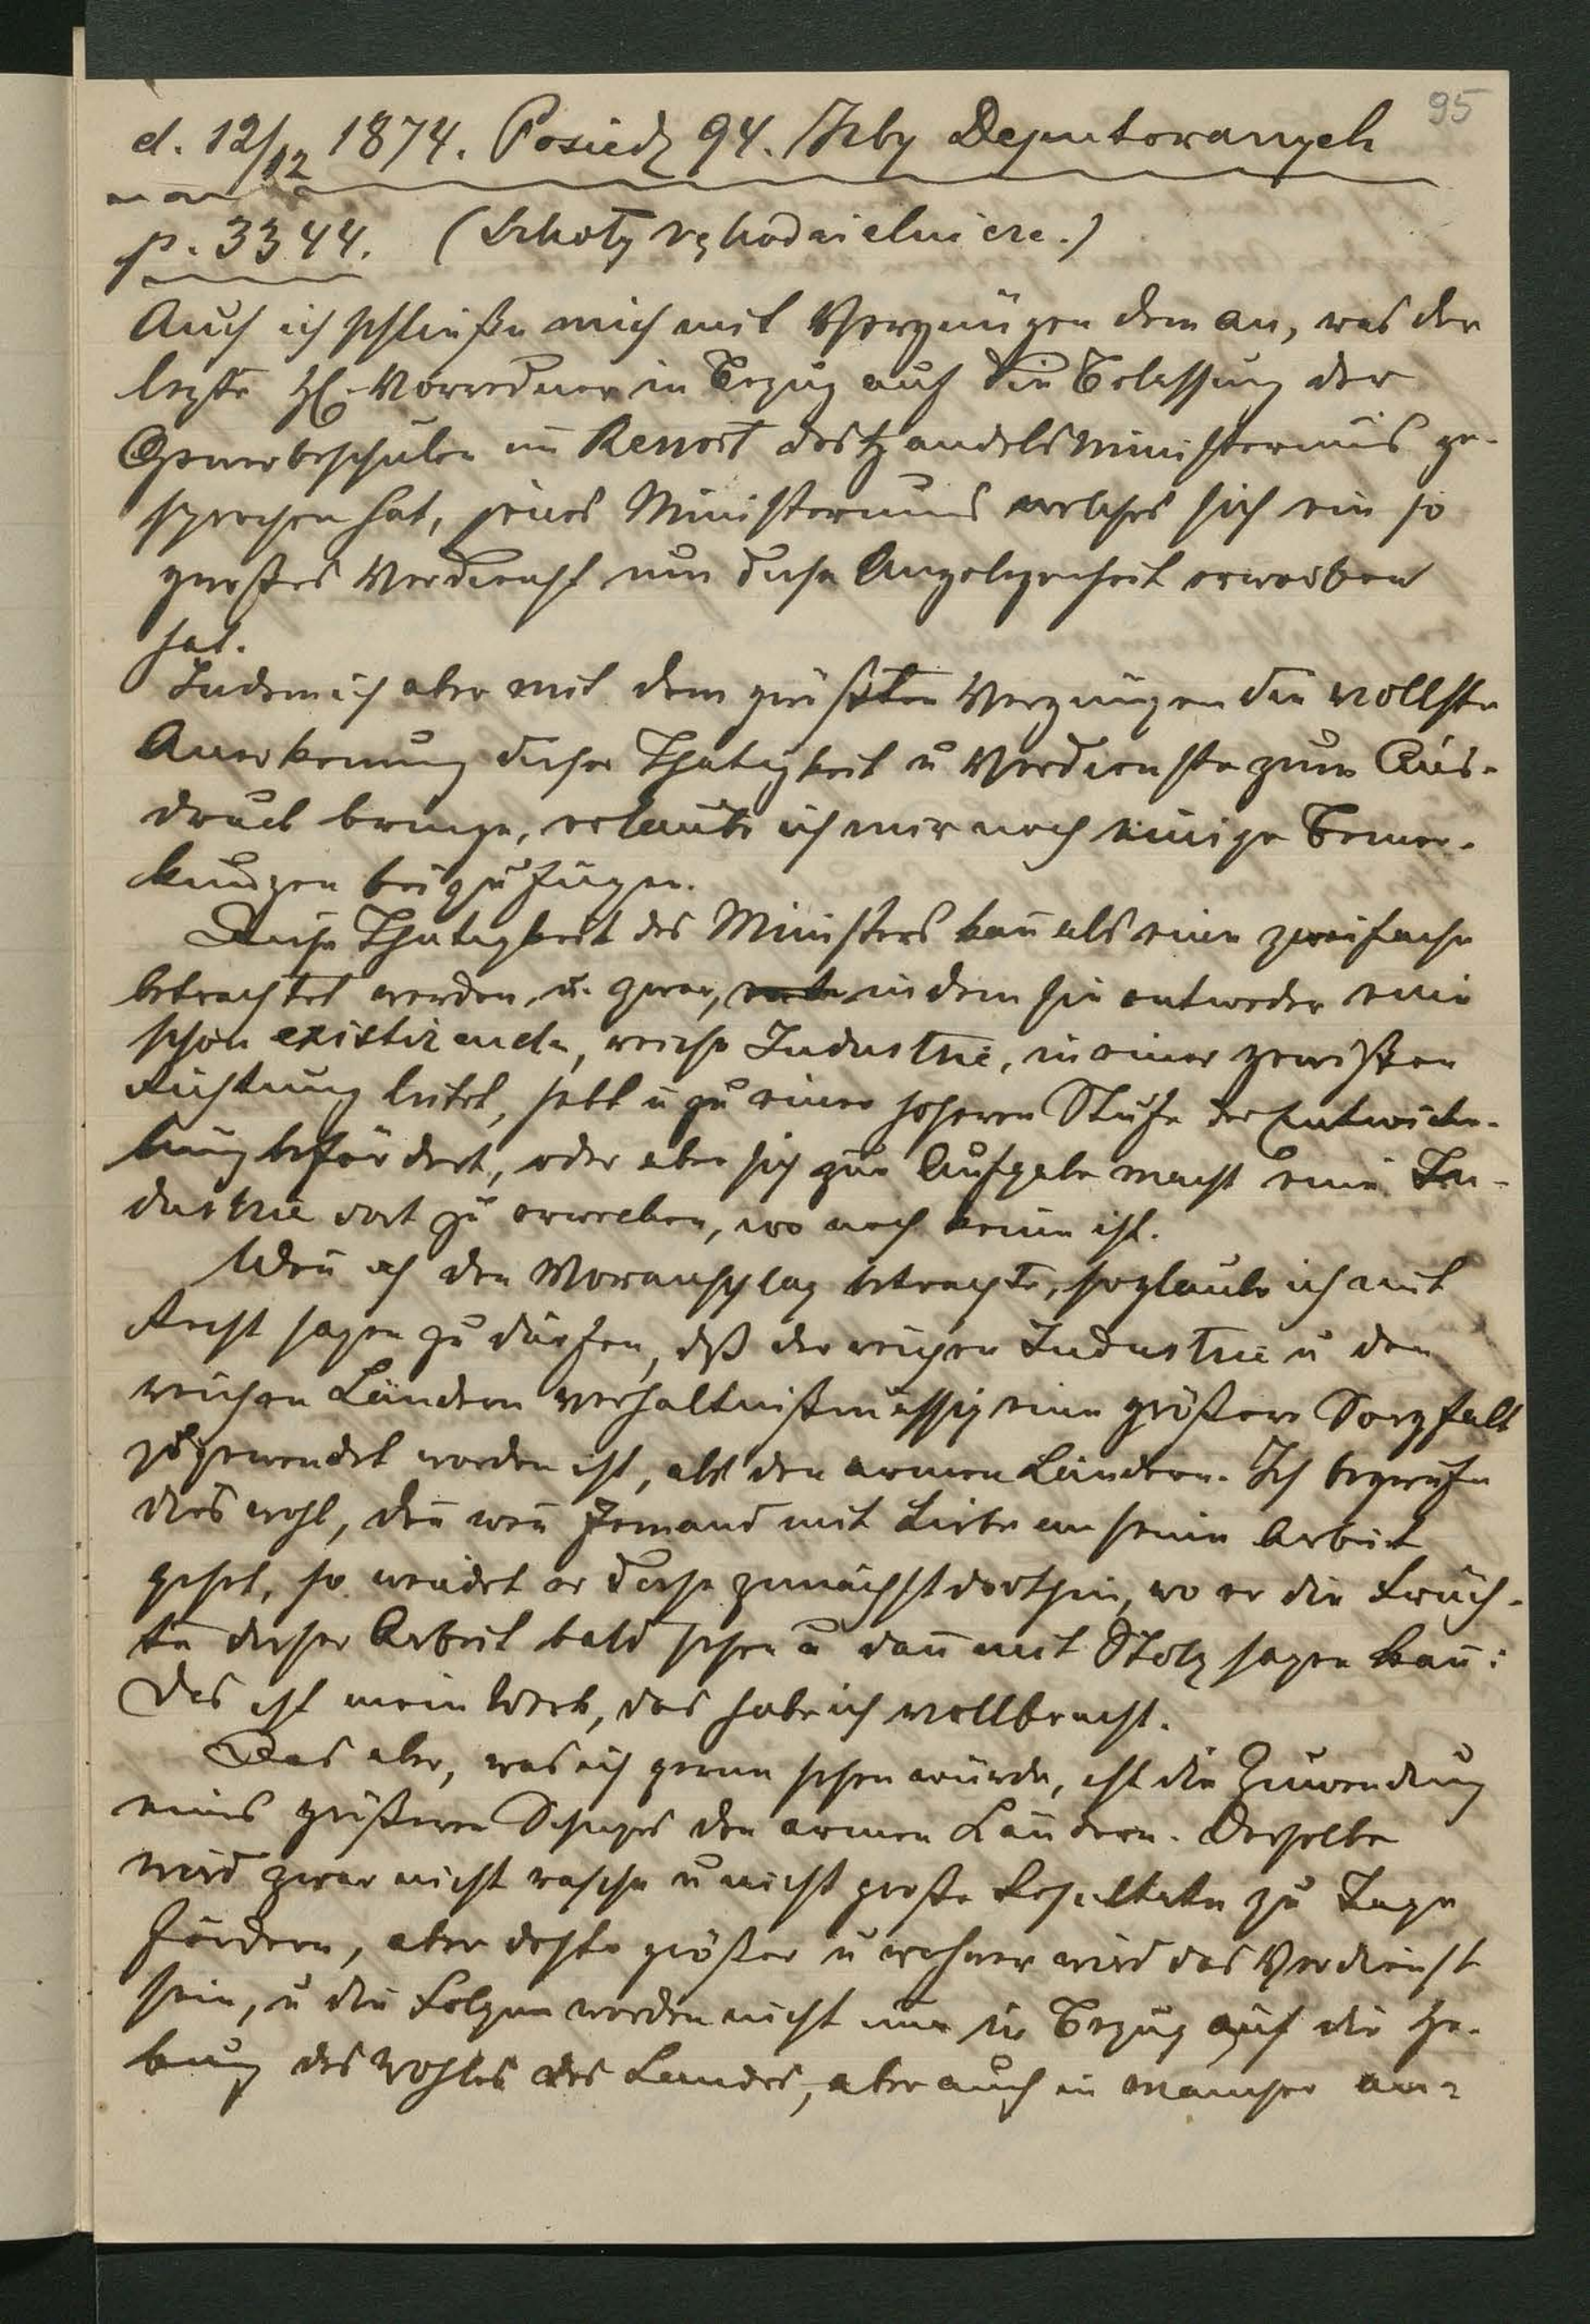 95
d. 12/12 1874. Posiedz 94. Izby Deputowanych
p. 3344. (Szkoły rękodzielnicze.)
Auch ich schließe mich mit Vergnügen dem an, was der
lezte H. Vorredner in Bezug auf die Belassung der
Gewerbeschulen im Ressort des Handelsministeriums ge-
sprochen hat, jenes Ministeriums welches sich ein so
großes Verdienst um diese Angelegenheit erworben
hat.
Indem ich aber mit dem größten Vergnügen die vollste
Anerkenung dieser Thätigkeit u Verdienste zum Aus-
druck bringe, erlaube ich mir noch einige Bemer-
kungen beizufügen.
Diese Thätigkeit des Ministers kan als eine zweifache
betrachtet werden u. zwar, indem sie entweder eine
schon existirende, reiche Industrie, in einer gewißen
Richtung leitet, hebt u zu einer höheren Stufe der Entwicke-
lung befördert, oder aber sich zur Aufgabe macht eine In-
dustrie dort zu erwecken, wo noch keine ist.
Wen ich den Voranschlag betrachte, so glaube ich mit
Recht sagen zu dürfen, dß der reichen Industrie u den
reichen Ländern verhältnißmässig eine größere Sorgfalt
zugewendet worden ist, als den armen Ländern. Ich begreife
dies wohl, den wen Jemand mit Liebe an seine Arbeit
gehet, so wendet er diese zunächst dorthin, wo er die Früch-
te dieser Arbeit bald sehen u dan mit Stolz sagen kan:
Das ist mein Werk, das habe ich vollbracht.
Das aber, was ich gerne sehen würde, ist die Zuwendung
eines größeren Schuzes den armen Ländern. Derselbe
wird zwar nicht rasche u nicht große Resultate zu Tage
fördern, aber desto größer u wahrer wird das Verdienst
sein, u die Folgen werden nicht nur in Bezug auf die He-
bung des Wohles des Landes, aber auch in mancher an-